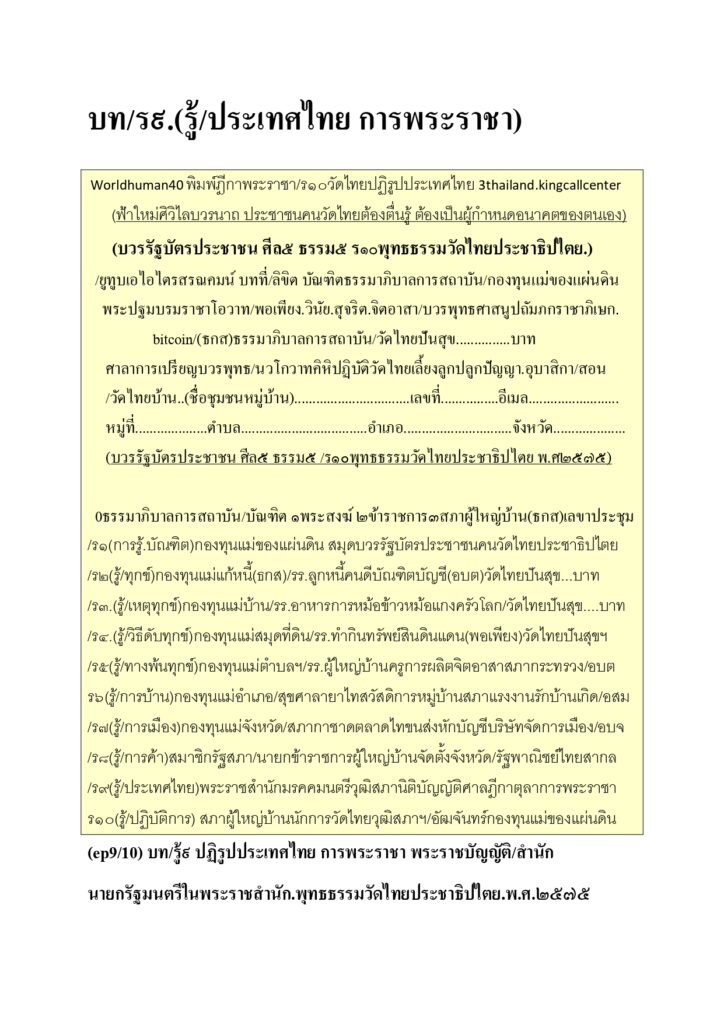 บท/ร๙.(รู้/ประเทศไทย การพระราชา)
Worldhuman40 พิมพ์ฎีกาพระราชา/ร๑๐วัดไทยปฏิรูปประเทศไทย 3thailand.kingcallcenter
(ฟ้าใหม่ศิวิไลบวรนาถ ประชาชนคนวัดไทยต้องตื่นรู้ ต้องเป็นผู้กำหนดอนาคตของตนเอง)
(บวรรัฐบัตรประชาชน ศีล๕ ธรรม๕ ร๑๐พุทธธรรมวัดไทยประชาธิปไตย.)
/ยูทูบเอไอไตรสรณคมน์ บทที่/ลิขิต บัณฑิตธรรมาภิบาลการสถาบัน/กองทุนแม่ของแผ่นดิน
พระปฐมบรมราชาโอวาท/พอเพียง.วินัย.สุจริต.จิตอาสา/บวรพุทธศาสนูปถัมภกราชาภิเษก.
bitcoin/(ธกส)ธรรมาภิบาลการสถาบัน/วัดไทยปันสุข...............บาท
ศาลาการเปรียญบวรพุทธ/นวโกวาทคิหิปฏิบัติวัดไทยเลี้ยงลูกปลูกปัญญา.อุบาสิกา/สอน
/วัดไทยบ้าน..(ชื่อชุมชนหมู่บ้าน)................................เลขที่................อีเมล.........................
หมู่ที่....................ตำบล...................................อำเภอ..............................จังหวัด....................
(บวรรัฐบัตรประชาชน ศีล๕ ธรรม๕ /ร๑๐พุทธธรรมวัดไทยประชาธิปไตย พ.ศ๒๕๗๕)
0ธรรมาภิบาลการสถาบัน/บัณฑิต ๑พระสงฆ์ ๒ข้าราชการ๓สภาผู้ใหญ่บ้าน(ธกส)เลขาประชุม
/ร๑(การรู้.บัณฑิต)กองทุนแม่ของแผ่นดิน สมุดบวรรัฐบัตรประชาชนคนวัดไทยประชาธิปไตย
/ร๒(รู้/ทุกข์)กองทุนแม่แก้หนี้(ธกส)/รร.ลูกหนี้คนดีบัณฑิตบัญชี(อบต)วัดไทยปันสุข...บาท
/ร๓.(รู้/เหตุทุกข์)กองทุนแม่บ้าน/รร.อาหารการหม้อข้าวหม้อแกงครัวโลก/วัดไทยปันสุข....บาท
/ร๔.(รู้/วิธีดับทุกข์)กองทุนแม่สมุดที่ดิน/รร.ทำกินทรัพย์สินดินแดน(พอเพียง)วัดไทยปันสุขฯ
/ร๕(รู้/ทางพ้นทุกข์)กองทุนแม่ตำบลฯ/รร.ผู้ใหญ่บ้านครูการผลิตจิตอาสาสภากระทรวง/อบต
ร๖(รู้/การบ้าน)กองทุนแม่อำเภอ/สุขศาลายาไทสวัสดิการหมู่บ้านสภาแรงงานรักบ้านเกิด/อสม
/ร๗(รู้/การเมือง)กองทุนแม่จังหวัด/สภากาชาดตลาดไทขนส่งหักบัญชีบริษัทจัดการเมือง/อบจ
/ร๘(รู้/การค้า)สมาชิกรัฐสภา/นายกข้าราชการผู้ใหญ่บ้านจัดตั้งจังหวัด/รัฐพาณิชย์ไทยสากล
/ร๙(รู้/ประเทศไทย)พระราชสำนักมรคคมนตรีวุฒิสภานิติบัญญัติศาลฎีกาตุลาการพระราชา
ร๑๐(รู้/ปฏิบัติการ) สภาผู้ใหญ่บ้านนักการวัดไทยวุฒิสภาฯ/อัฒจันทร์กองทุนแม่ของแผ่นดิน
(ep9/10) บท/รู้๙ ปฏิรูปประเทศไทย การพระราชา พระราชบัญญัติ/สำนัก
นายกรัฐมนตรีในพระราชสำนัก.พุทธธรรมวัดไทยประชาธิปไตย.พ.ศ.๒๕๗๕